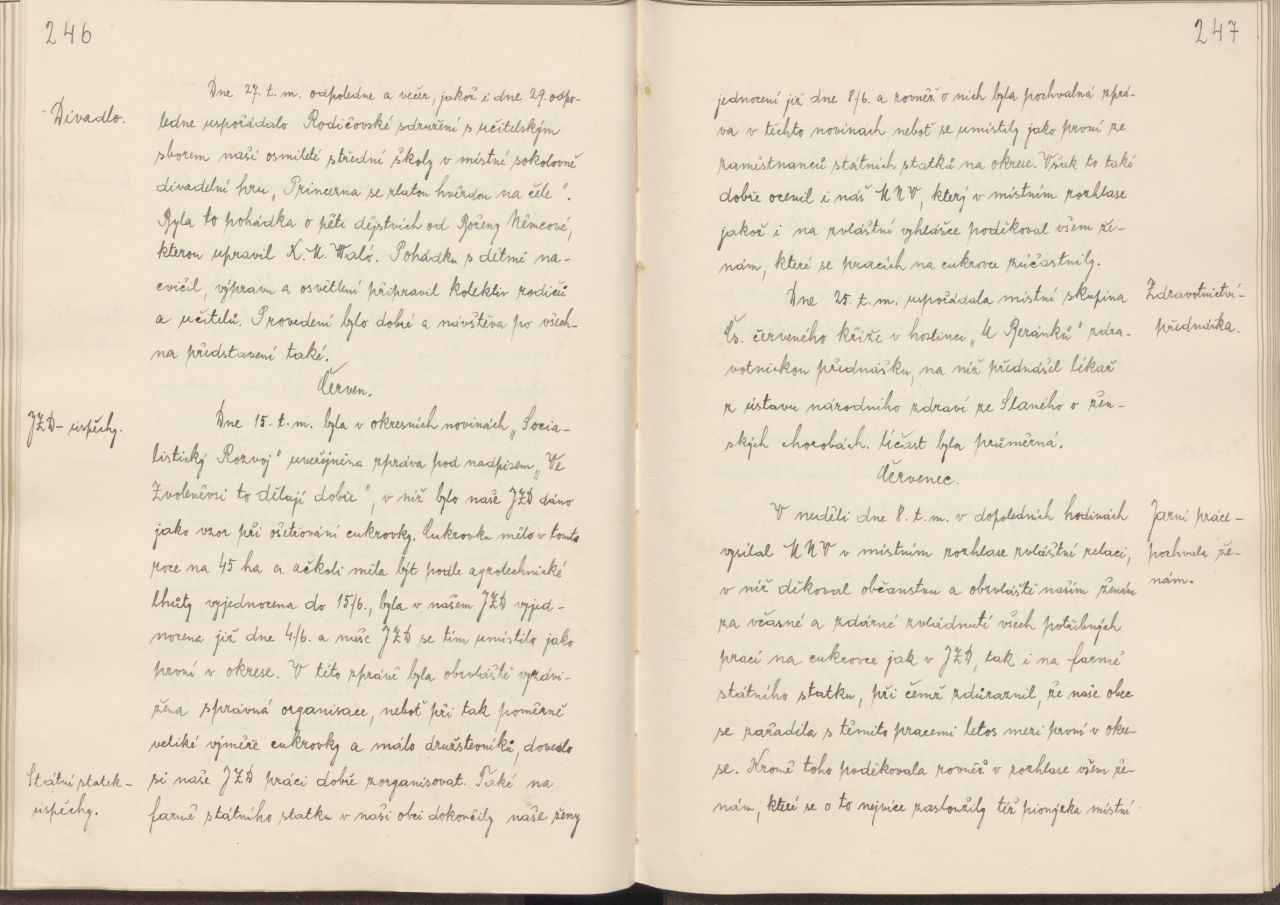 246
Divadlo.
Dne 27. t. m. odpoledne a večer, jakož i dne 29. odpo-
ledne uspořádalo Rodičovské sdružení s učitelským
sborem naší osmileté střední školy v místní sokolovně
divadelní hru „Princezna se zlatou hvězdou na čele“.
Byla to pohádka o pěti dějstvích od Boženy Němcové,
kterou upravil K. M. Waló. Pohádku s dětmi na-
cvičil, výpravu a osvětlení připravil kolektiv rodičů
a učitelů. Provedení bylo dobré a návštěva po všech-
na představení také.
Červen.
JZD - úspěchy.
Dne 15. t. m. byla v okresních novinách „Socia-
listický Rozvoj“ uveřejněna zpráva pod nadpisem „Ve
Zvoleněvsi to dělají dobře“, v níž bylo naše JZD dáno
jako vzor při ošetřování cukrovky. Cukrovku mělo v tomto
roce na 45 ha a ačkoli měla být podle agrotechnické
lhůty vyjednocena do 15/6., byla v našem JZD vyjed-
nocena již dne 4/6. a naše JZD se tím umístilo jako
první v okrese. V této zprávě byla obzvláště vyzdvi-
žena správná organisace, neboť při tak poměrně
veliké výměře cukrovky a málo družstevníků, dovedlo
si naše JZD práci dobře zorganisovat. Také na
Státní statek -
úspěchy.
farmě státního statku v naší obci dokončily naše ženy
247
jednocení již dne 8/6. a rovněž o nich byla pochvalná zprá-
va v těchto novinách neboť se umístily jako první ze
zaměstnanců státních statků na okrese. Však to také
dobře ocenil i náš MNV, který v místním rozhlase
jakož i na zvláštní vyhlášce poděkoval všem že-
nám, které se pracích na cukrovce zúčastnily.
Zdravotnictví -
přednáška.
Dne 25. t. m. uspořádala místní skupina
Čs. červeného kříže v hostinci „U Beránků“ zdra-
votnickou přednášku, na níž přednášel lékař
z ústavu národního zdraví ze Slaného o žen-
ských chorobách. Účast byla průměrná.
Červenec.
Jarní práce -
pochvala že-
nám.
V neděli dne 8. t. m. v dopoledních hodinách
vysílal MNV v místním rozhlase zvláštní relaci,
v níž děkoval občanstvu a obzvláště našim ženám
za včasné a zdárné zvládnutí všech potřebných
prací na cukrovce jak v JZD, tak i na farmě
státního statku, při čemž zdůraznil, že naše obec
se zařadila s těmito pracemi letos mezi první v okre-
se. Kromě toho poděkovala rovněž v rozhlase všem že-
nám, které se o to nejvíce zasloužily též pionýrka místní